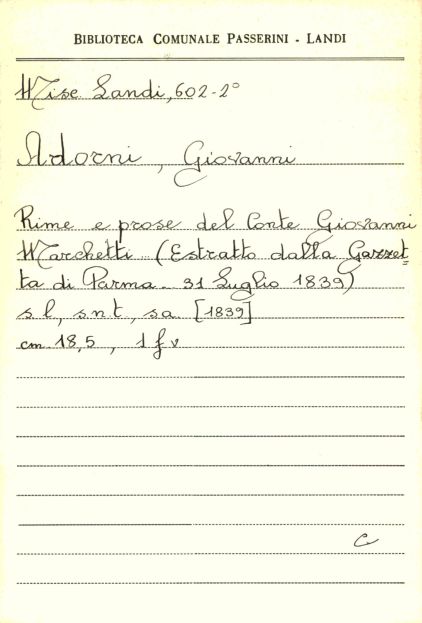 BIBLIOTECA COMUNALE PASSERINI - LANDI
Misc. Landi, 602-2°
Adorni, Giovanni
Rime e prose del Conte Giovanni
Marchetti (Estratto dalla Gazzet=
ta di Parma - 31 Luglio 1839)
s. l, s.n.t, s.a. [1839]
cm. 18,5, 1 f v
C